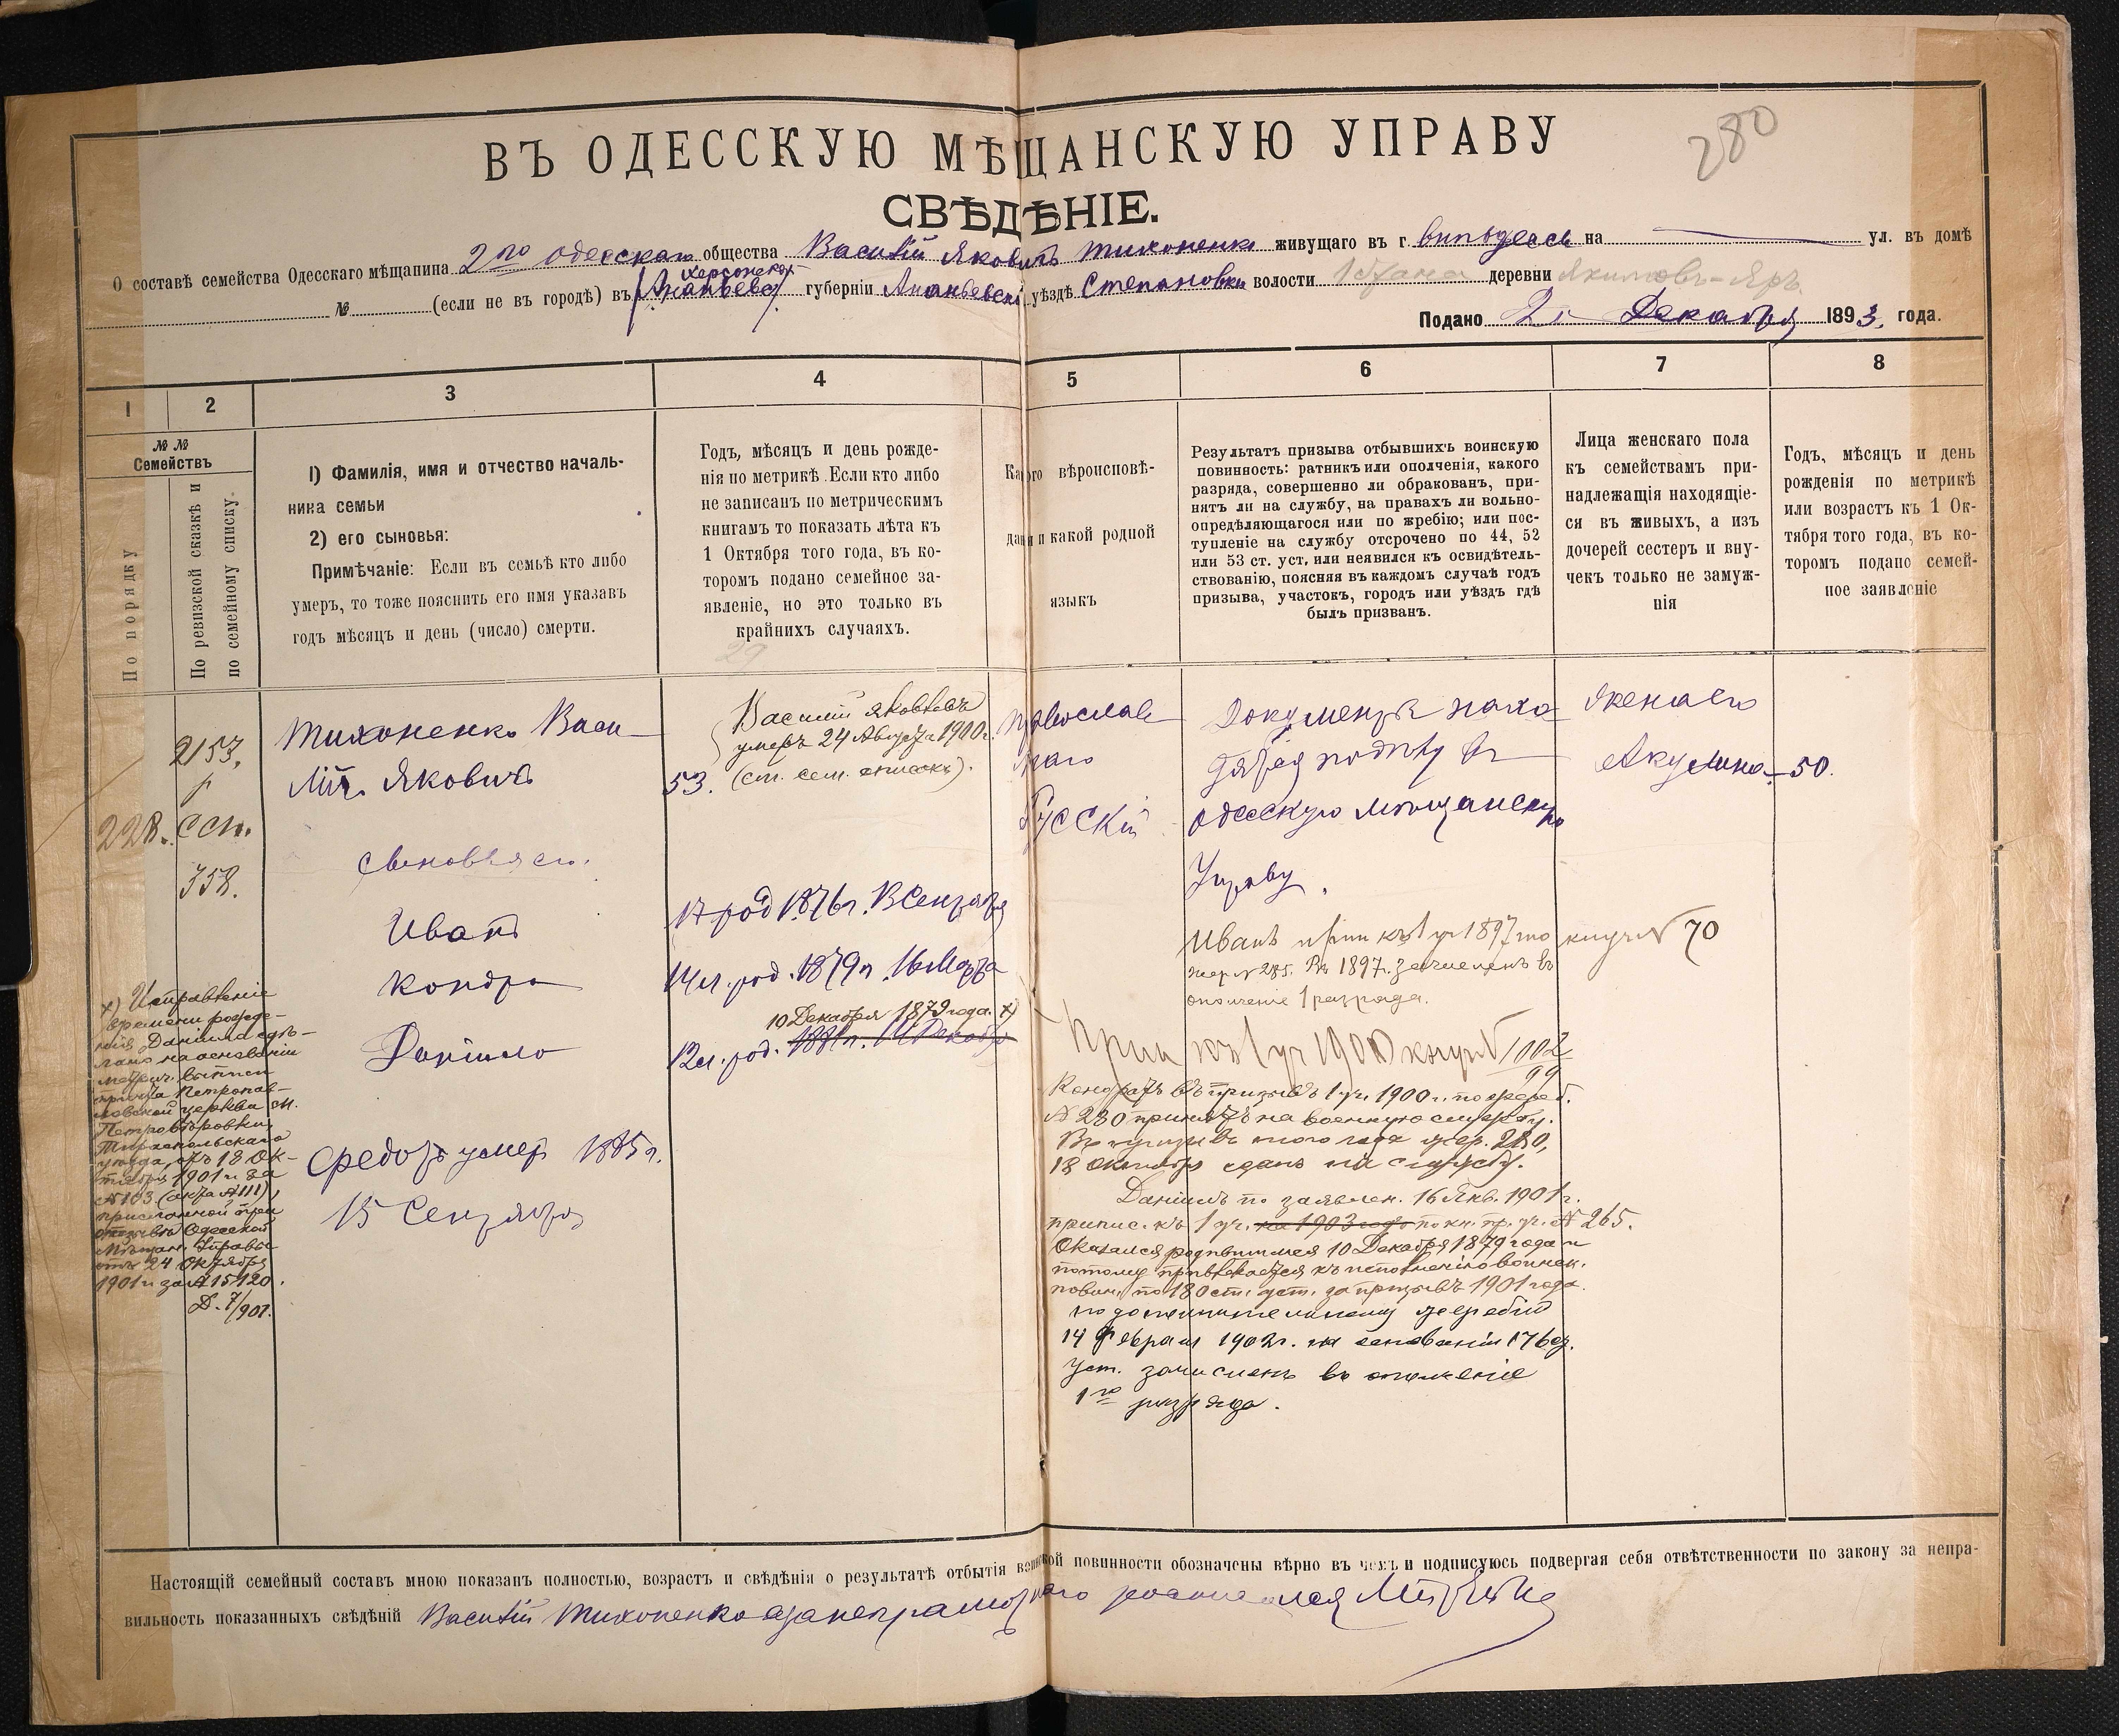 280
ВЪ ОДЕССКУЮ МѢЩАНСКУЮ УПРАВУ
СВѢДѢНІЕ.
О составѣ семейства Одесскаго мѣщанина 2го одесскаго общества Василій Яковичъ Тихоненко живущаго въ г. на ул. въ домѣ
№ (если не въ городѣ) въ Херсонской губерніи Ананьевскі уѣздѣ Степановки волости деревни Якимовъ-Яръ
Подано 2 Декабря 1893. года.
1 2 3 4 5 6 7 8
№ №
Семействъ
По порядку
По ревизской сказкѣ и
по семейному списку.
1) Фамилія, имя и отчество началь-
ника семьи
2) его сыновья:
Примѣчаніе: Если въ семьѣ кто либо
умеръ, то тоже пояснить его имя указавъ
годъ мѣсяцъ и день (число) смерти.
Годъ, мѣсяцъ и день рожде-
нія по метрикѣ. Если кто либо
не записанъ по метрическимъ
книгамъ то показать лѣта къ
1 Октября того года, въ ко-
торомъ подано семейное за-
явленіе, но это только въ
крайнихъ случаяхъ.
29
Какого вѣроисповѣ-
данія и какой родной
языкъ
Результатъ призыва отбывшихъ воинскую
повинность: ратникъ или ополченія, какого
разряда, совершенно ли обракованъ, при-
нятъ ли на службу, на правахъ ли вольно-
опредѣляющагося или по жребію; или пос-
тупленіе на службу отсрочено по 44, 52
или 53 ст. уст. или неявился къ освидѣтель-
ствованію, поясняя въ каждомъ случаѣ годъ
призыва, участокъ, городъ или уѣздъ гдѣ
былъ призванъ.
Лица женскаго пола
къ семействамъ при-
надлежащія находящіе-
ся въ живыхъ, а изъ
дочерей сестеръ и вну-
чекъ только не замуж-
нія
Годъ, мѣсяцъ и день
рожденія по метрикѣ
или возрастъ къ 1 Ок-
тября того года, въ ко-
торомъ подано семей-
ное заявленіе
228.
2153.
ссп.
358.
Тихоненко Васи-
лій Яковичъ
53.
Василій Яковлевъ
умеръ 24 Августа 1900г.
(см. сем. списокъ).
православ
наго
Русскій
Документъ нахо
дятся
одесскую мѣщанскую
Управу.
жена его
Акулина - 50.
сыновья его.
Иванъ
17 род 1876г. Сентября
Кондра
14 л. род. 1879г. 16 Марта
Даніило
12 л. род. 1881г. Декабр
10 Декабря 1879 года. х)
Федоръ умер 1885г.
15 Сентября
Иванъ прип къ 1 уч 1897 по книг № 70
жер № 285. Въ 1897г. зачисленъ въ
ополченіе 1 разряда.
Прип къ 1 уч 1900 книг № 1002
99
Кондратъ въ призывъ 1 уч. 1900г. по жреб.
№ 280 принятъ на военную службу.
Въ призывъ того года жер. 280,
18 октября сданъ на службу.
Даніилъ по заявлен. 16 Янв. 1901г.
припис. къ 1 уч. на 1903 годъ по кн. пр. уч. № 265.
Оказался родившимся 10 Декабря 1879 года и
потому привлекается къ исполненію воинск.
повин. по 180 ст. уст. за призывъ 1901 года.
по дополнительному жеребію
14 Февраля 1902г. на основаніи 176
уст. зачисленъ въ ополченіе
1го разряда.
х) Исправленіе
времени рожде-
нія Даніила сдѣ-
лано на основаніи
метрич. выписи
причта Петропав-
ловской церкви м.
Петровѣровки,
Тираспольскаго
уѣзда, отъ 18 Ок-
тября 1901 г. за
№ 103 (актъ № 111),
присланной при
отзывѣ Одесской
Мѣщан. Управы
отъ 24 Октября
1901 г. за № 15120.
Д. 7/901.
Настоящій семейный составъ мною показанъ полностью, возрастъ и свѣдѣнія о результатѣ отбытія воинской повинности обозначены вѣрно въ чемъ и подписуюсь подвергая себя отвѣтственности по закону за непра-
вильность показанныхъ свѣдѣній Василій Тихоненко а за неграмотнаго